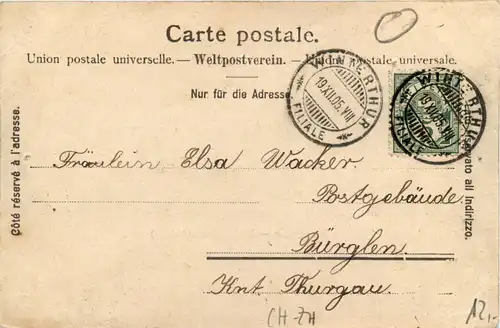 Carte postale.
Union postale universelle. — Weltpostverein. — Unione postale universale.
Nur für die Adresse.
WINTERTHUR
19.XII.05.VIII
FILIALE
WINTERTHUR
19.XII.05.VIII
FILIALE
Côté réservé à l'adresse.
Fräulein Elsa Wacker
Postgebäude
Bürglen.
Knt. Thurgau.
all indirizzo.
CH-ZH
12,-